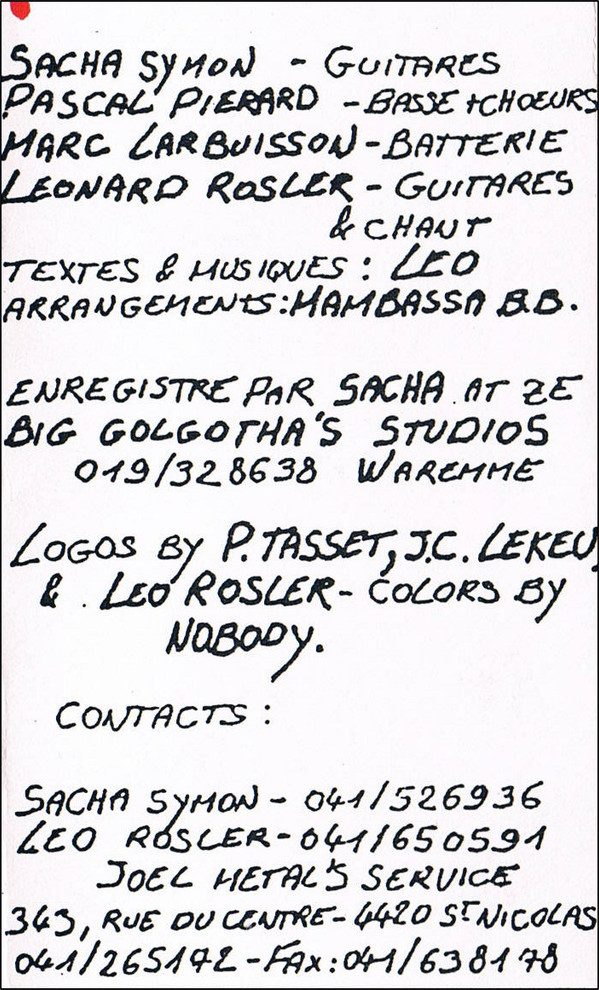 SACHA SYMON - GUITARES
PASCAL PIERARD - BASSE + CHOEURS
MARC LARBUISSON - BATTERIE
LEONARD ROSLER - GUITARES
& CHANT
TEXTES & MUSIQUES : LEO
ARRANGEMENTS : MAMBASSA B.B.
ENREGISTRE PAR SACHA AT ZE
BIG GOLGOTHA'S STUDIOS
019/328638 WAREMME
LOGOS BY P. TASSET, J.C. LEKEU,
& LEO ROSLER - COLORS BY
NOBODY.
CONTACTS :
SACHA SYMON - 041/526936
LEO ROSLER - 041/650591
JOEL METAL'S SERVICE
343, RUE DU CENTRE - 4420 ST NICOLAS
041/265172 - FAX : 041/638178